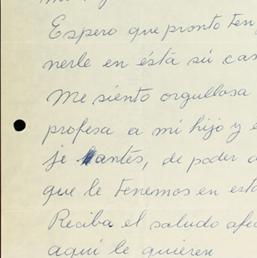 Espero que pronto ten
nerle en ésta sú cas
Me siento orgullosa
profesa a mi hijo y e
je antes, de poder
que le tenemos en est
Reciba el saludo afe
aquí le quieren